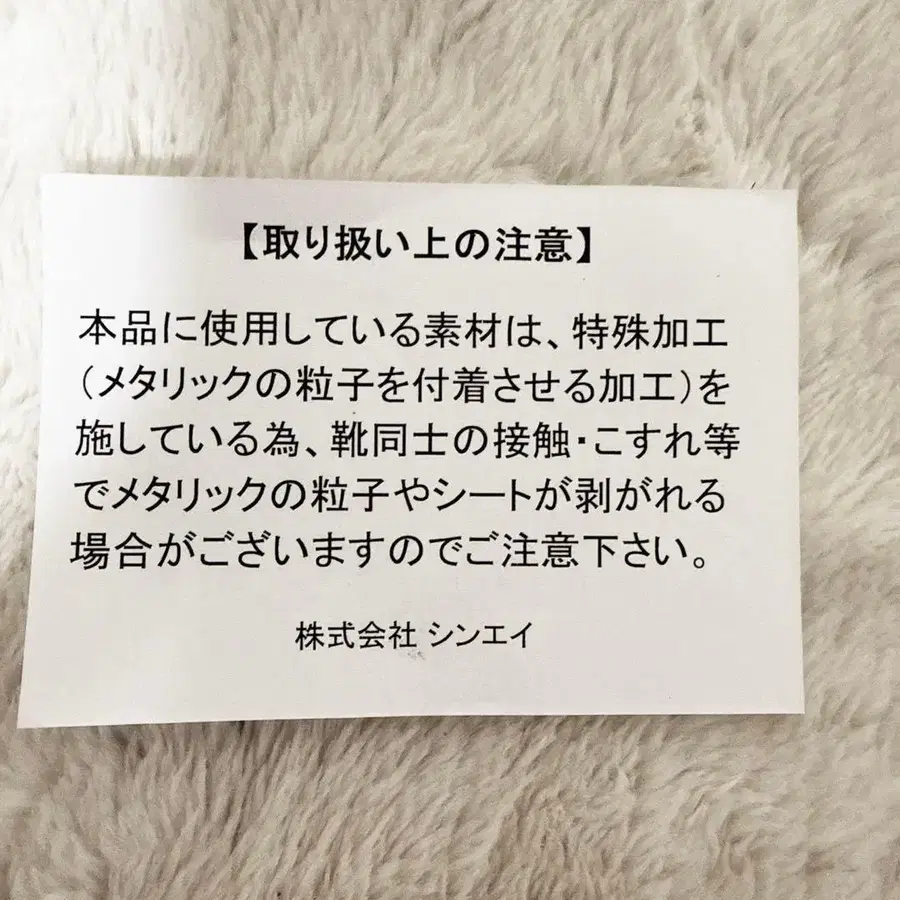 【取り扱い上の注意】
本品に使用している素材は、特殊加工
（メタリックの粒子を付着させる加工）を
施している為、靴同士の接触・こすれ等
でメタリックの粒子やシートが剥がれる
場合がございますのでご注意下さい。
株式会社 シンエイ